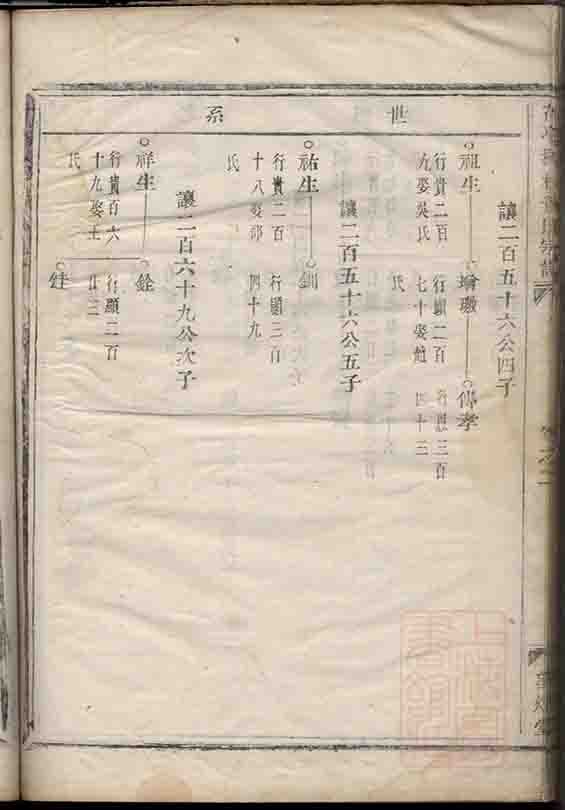 世系
讓二百五十六公四子
祖生
行貴二百
九娶吳氏
瑜璈
行顯二百
七十娶趙
氏
傳孝
行恩三百
四十三
讓二百五十六公五子
祐生
行貴二百
十八娶邵
氏
釧
行顯三百
四十九
讓二百六十九公次子
祥生
行貴百六
十九娶王
氏
銓
行顯二百
廿三